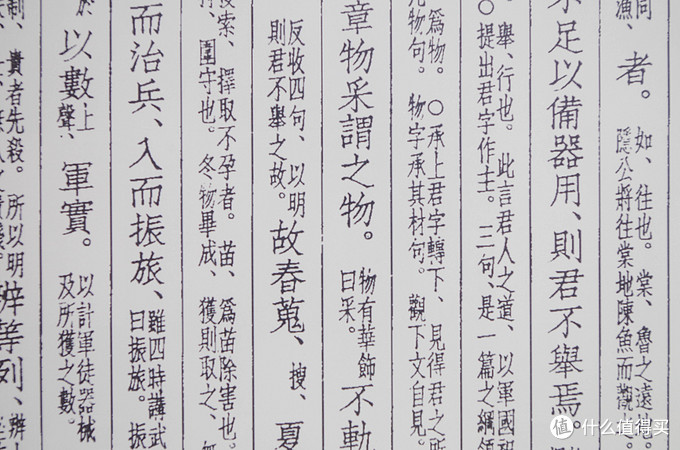 同、
漁、
者。
如、往也。棠、魯之遠地。
隱公將往棠地陳魚而觀之。
不足以備器用、則君不舉焉。
舉、行也。此言君人之道、以軍國祀
○提出君字作主。三句、是一篇之綱領
爲物。○承上君字轉下、見得君之所
物句。物字承其材句。觀下文自見。
章物采謂之物。
物有華飾
曰采。
不軌
反收四句、以明
則君不舉之故。
故春蒐、
搜、
夏
搜索、擇取不孕者。苗、爲苗除害也。
圍守也。冬物畢成、獲則取之、
而治兵、入而振旅、
雖四時講武
曰振旅。振
於
以數
上
聲、
軍實。
以計軍徒器械
及所獲之數。
制、貴者先殺。所以明
辨等列、
辨
值 什么值得买